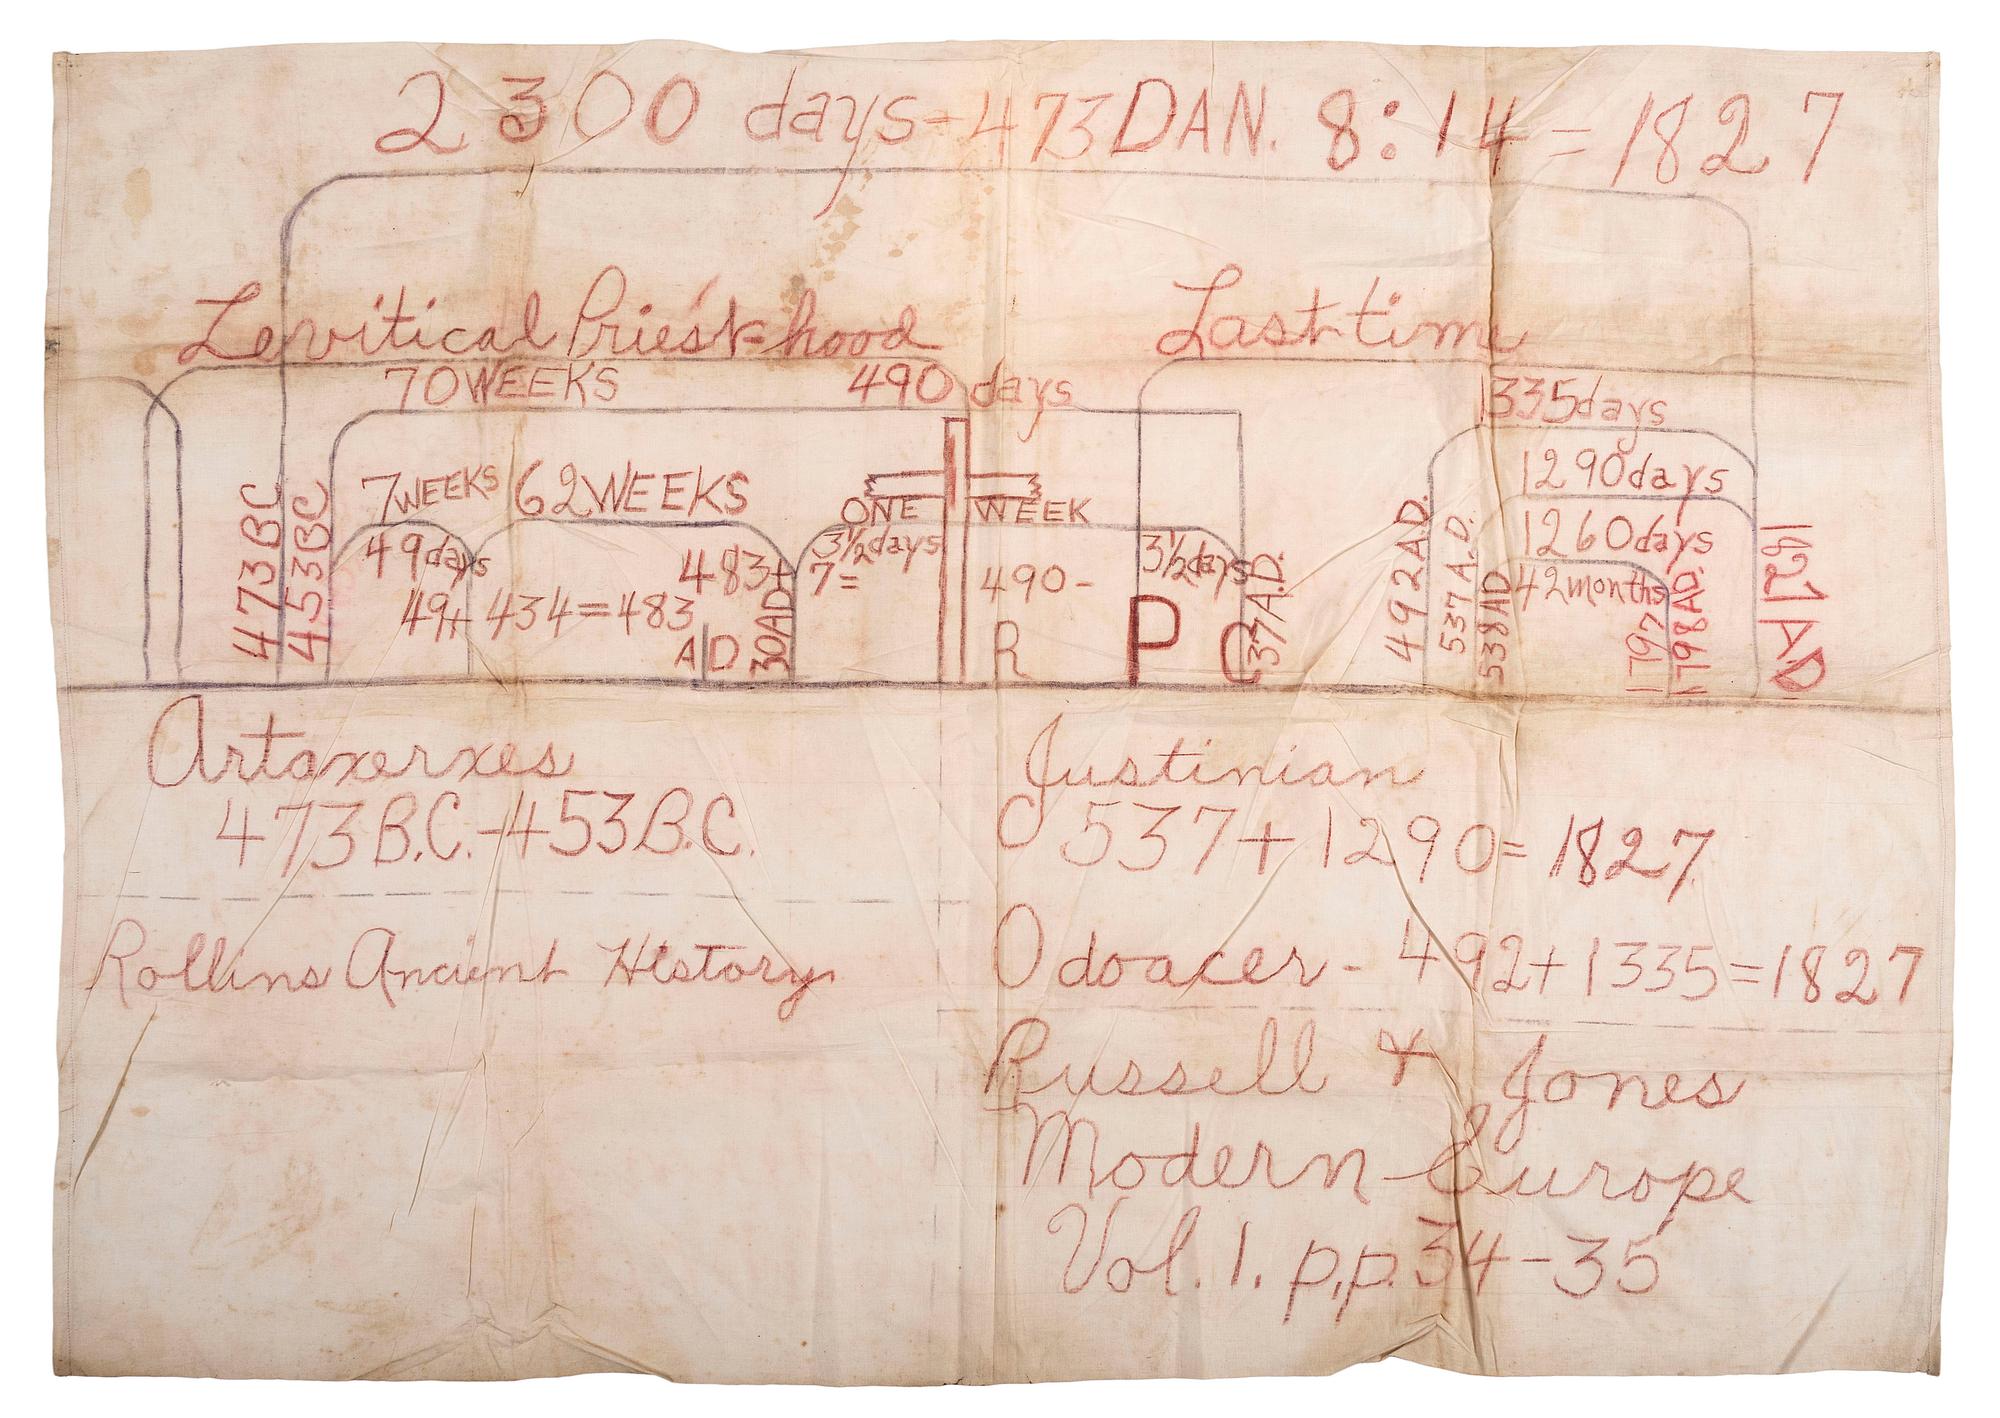 2300 days-473 DAN. 8:14 = 1827
Levitical Priest-hood
Last time
70 WEEKS 490 days
1335 days
7 WEEKS 62 WEEKS
ONE WEEK
1290 days
49 days
483+
3½ days
7=
490-
3½ days
1260 days
49+ 434=483
42 months
473 BC
453 BC
AD
30 AD
R
P
C
37 A.D.
492 A.D.
537 A.D.
538 AD
1797
1798 AD.
1827 AD
Artaxerxes
473 B.C.-453 B.C.
Rollins Ancient History
Justinian
537+1290=1827
Odoacer - 492+1335=1827
Russell & Jones
Modern Europe
Vol. 1. p.p. 34-35